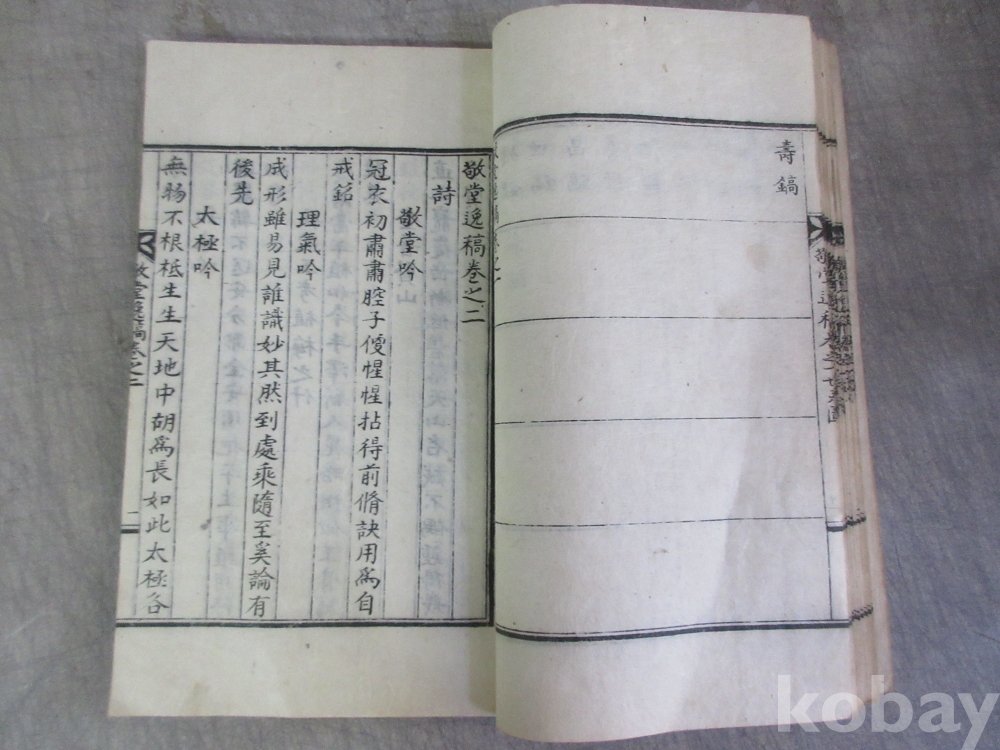 壽鎬
敬堂逸稿卷之二
詩
敬堂吟
冠衣初肅肅腔子便惺惺拈得前脩訣用爲自
戒銘
理氣吟
成形雖易見誰識妙其然到處乘隨至奚論有
後先
太極吟
無物不根柢生生天地中胡爲長如此太極各
敬堂逸稿卷之二
kobay